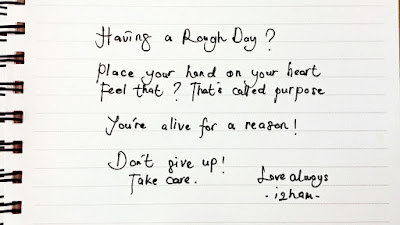 Having a Rough Day?
Place your hand on your heart
Feel that? That's called purpose
You're alive for a reason!
Don't give up!
Take care.
Love always
- izham -